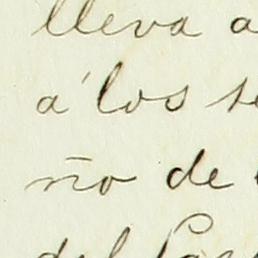 lleva a
á los se
ño de
del